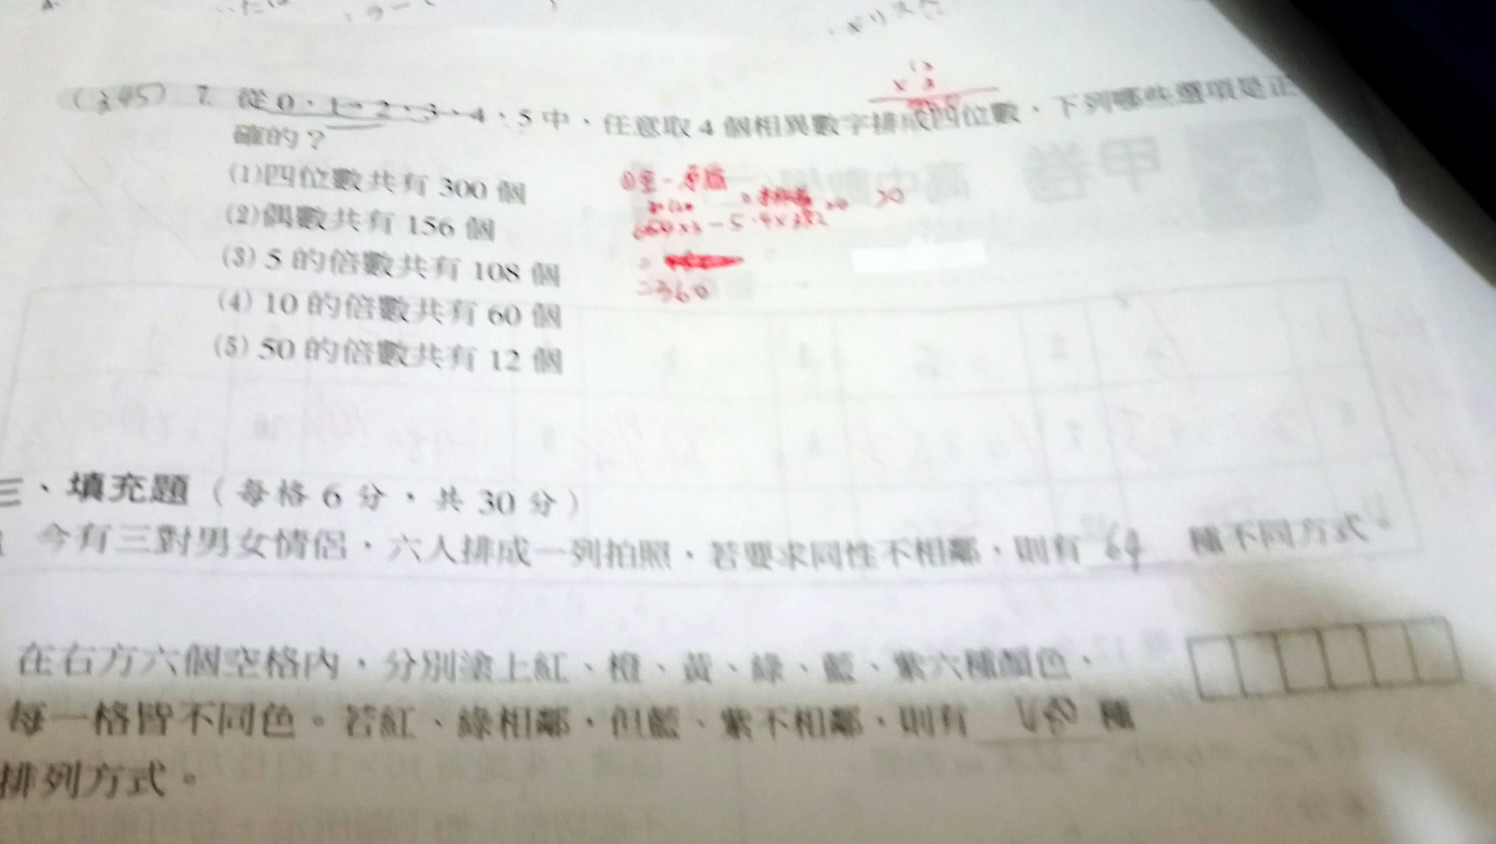 (345) 7. 從 0、1、2、3、4、5 中，任意取 4 個相異數字排成四位數，下列哪些選項是正
確的？
(1)四位數共有 300 個
(2)偶數共有 156 個
(3) 5 的倍數共有 108 個
(4) 10 的倍數共有 60 個
(5) 50 的倍數共有 12 個
=360
三、填充題（每格 6 分，共 30 分）
今有三對男女情侶，六人排成一列拍照，若要求同性不相鄰，則有 64 種不同方式。
在右方六個空格內，分別塗上紅、橙、黃、綠、藍、紫六種顏色，
每一格皆不同色。若紅、綠相鄰，但藍、紫不相鄰，則有 種
排列方式。